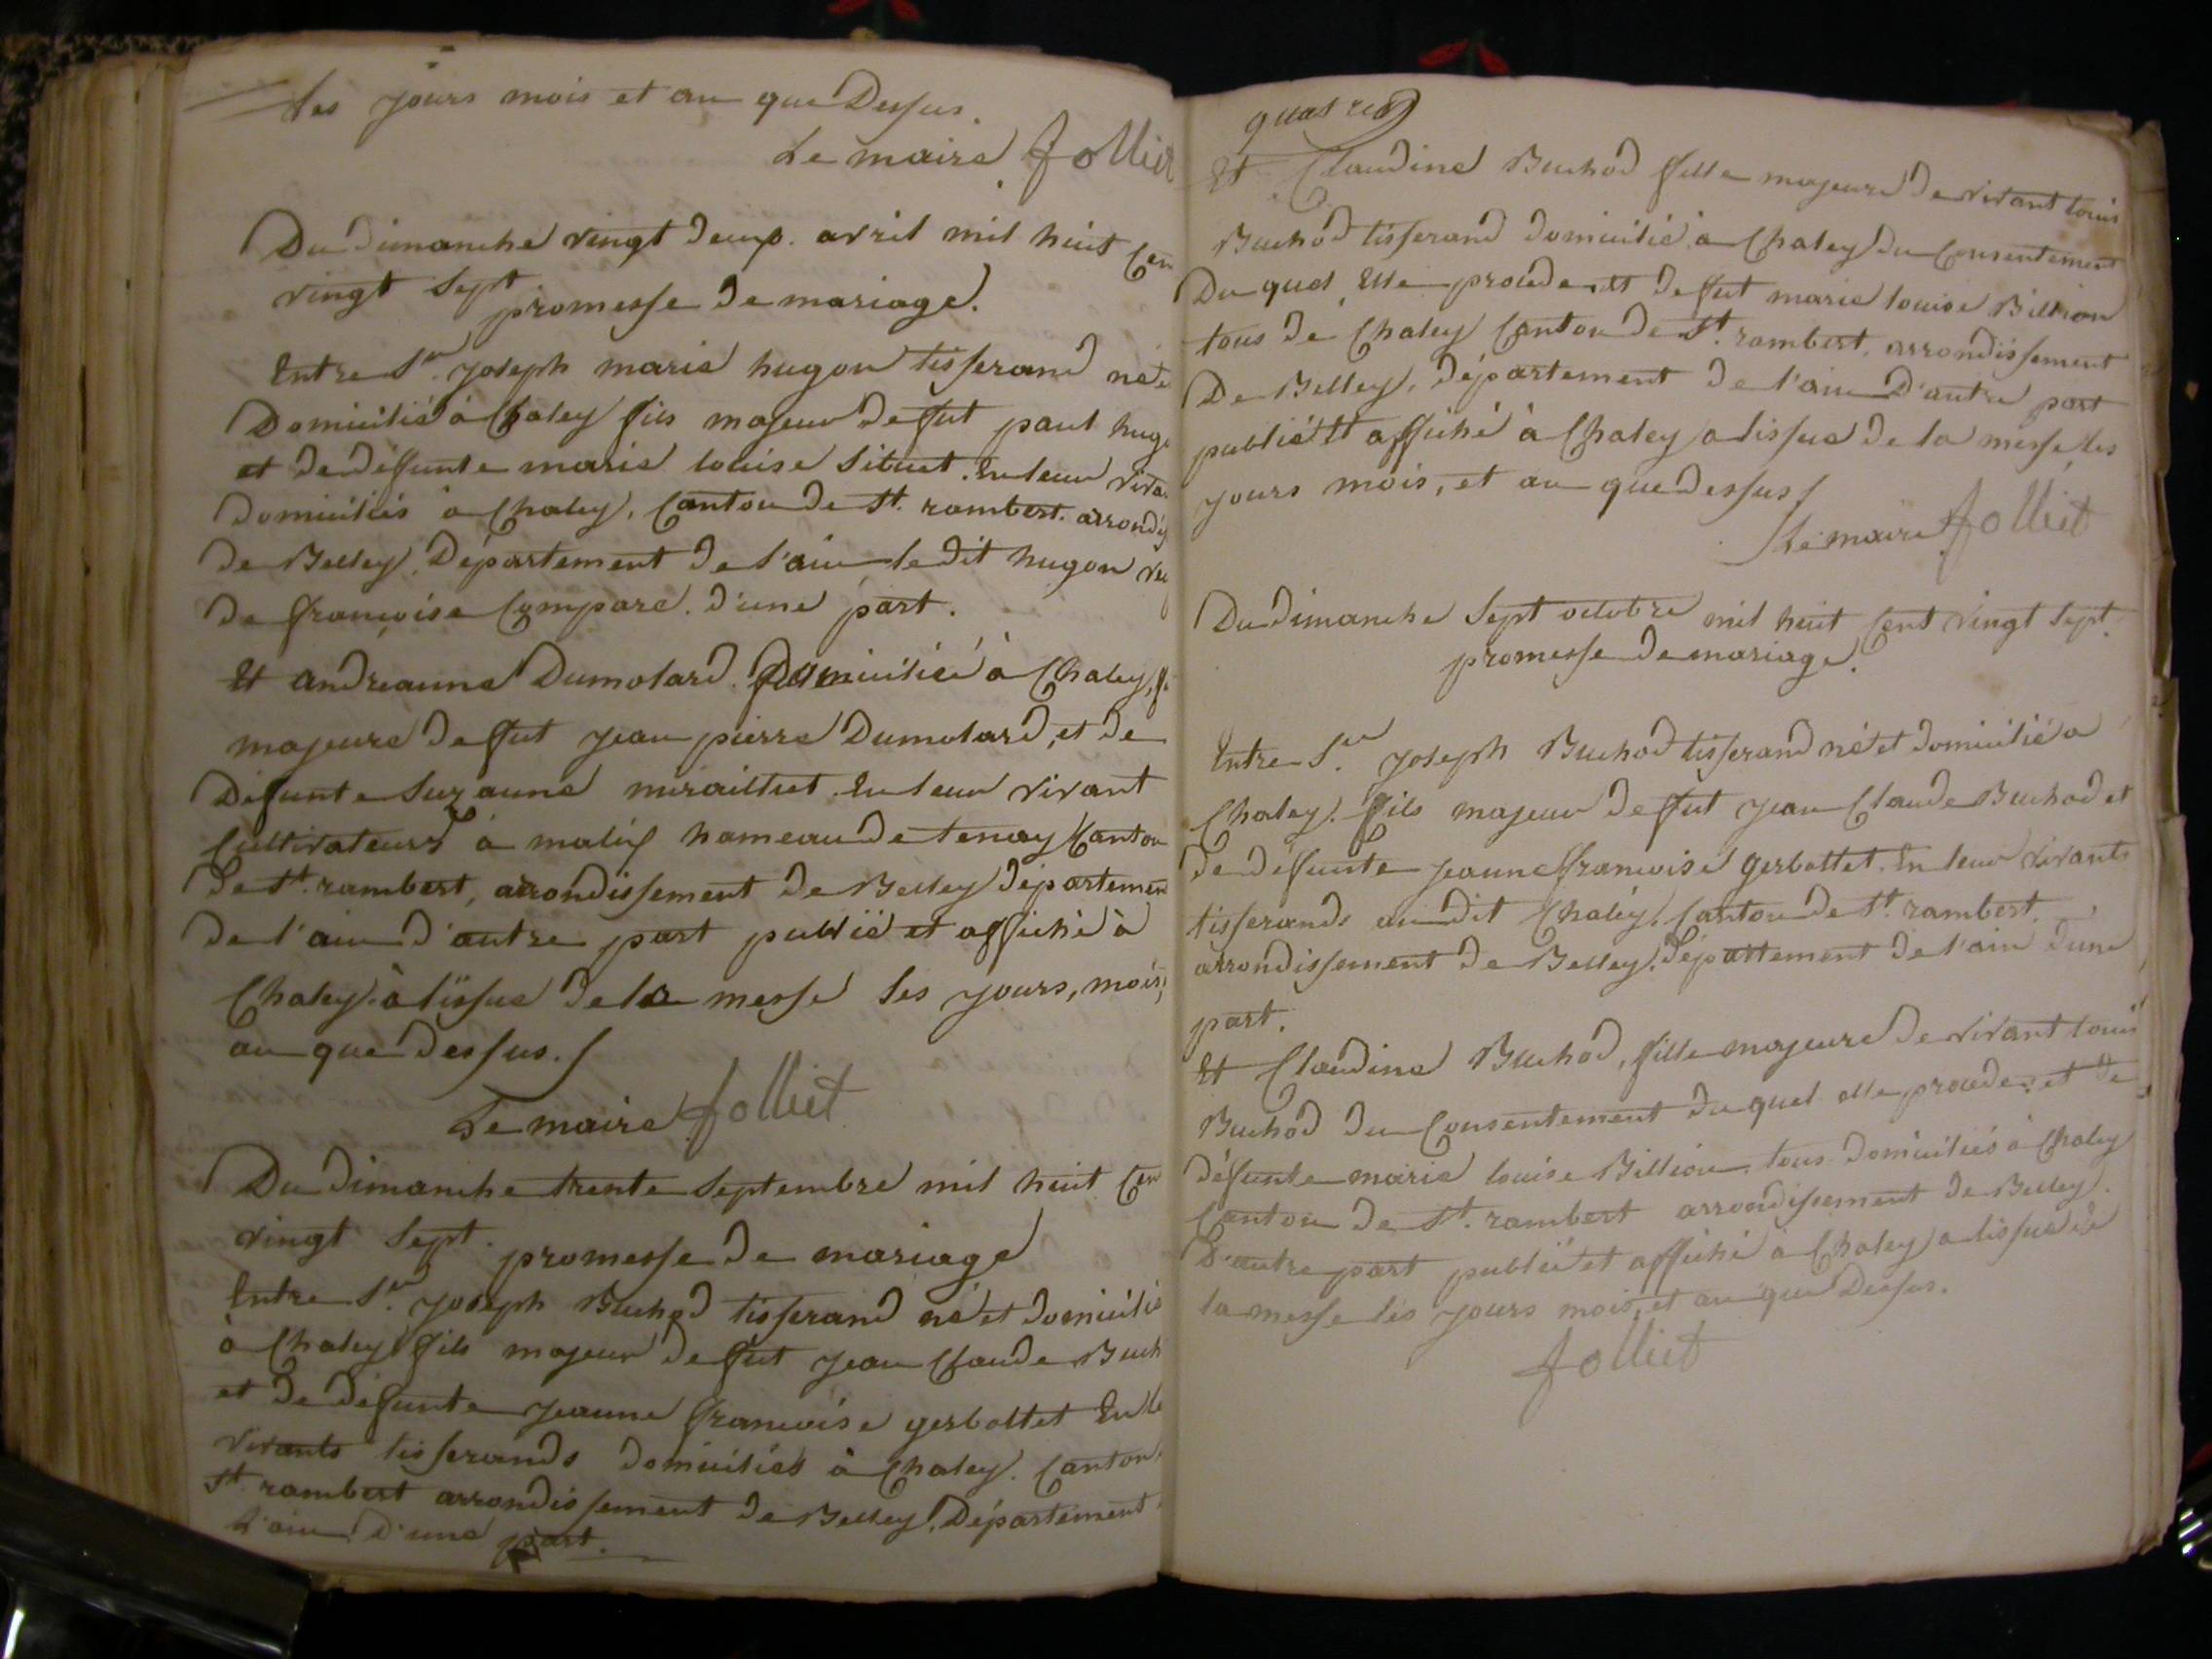 Les jours mois et an que Dessus.
Le maire Jolliet
Du dimanche vingt deux avril mil huit Cen
vingt Sept
promesse de mariage.
Entre Sr. joseph marie hugon tisserand né e
Domicilié à Chaley fils majeur de fut paul hug
et de deffunte marie louise Situet. En leur viva
domiciliés à Chaley, Canton de St. rambert. arrondis
de Belley, Département de l'ain le dit hugon veu
de françoise Compare. d'une part.
Et andréanne Dumolard. Domiciliée à Chaley, fi
majeure de fut jean pierre Dumolard, et de
Défunte Suzanne miraillet. En leur vivant
Cultivateurs à malix hameau de tenay Canton
de St. rambert, arrondissement de Belley Départemen
de l'ain d'autre part publié et affiché à
Chaley à lissue de la messe les jours, mois,
an que dessus./
Le maire Jolliet
Du dimanche trente Septembre mil huit Cen
vingt Sept.
promesse de mariage
Entre Sr. joseph Buchod tisserand né et domicilié
à Chaley fils majeur de fut jean Claude Buch
et de défunte jeanne françoise gerbollet En le
vivants tisserands domiciliés à Chaley. Canton
St. rambert arrondissement de Belley, Département
L'ain d'une part.
quatre
Et Claudine Buchod fille majeure de vivant louis
Buchod tisserand domicilié à Chaley du Consentement
Du quel Elle procède et de fut marie louise Billion
tous de Chaley Canton de St. rambert, arrondissement
De Belley, Département de l'ain D'autre part
publié Et affiché à Chaley a lissue de la messe les
jours mois, et an que dessus /
Le maire Jolliet
Du dimanche Sept octobre mil huit Cent vingt Sept.
promesse de mariage.
Entre Sr. joseph Buchod tisserand né et domicilié a
Chaley. fils majeur de fut jean Claude Buchod et
de défunte jeanne françoise gerbollet. En leur vivants
tisserands audit Chaley. Canton de St. rambert.
arrondissement de Belley. Département de l'ain d'une
part.
Et Claudine Buchod, fille majeure de vivant louis
Buchod du Consentement du quel elle procède, et de
défunte marie louise Billion tous domiciliés à Chaley
Canton de St. rambert arrondissement de Belley.
D'autre part publié et affiché à Chaley a lissue de
la messe les jours mois, et an que Dessus.
Jolliet